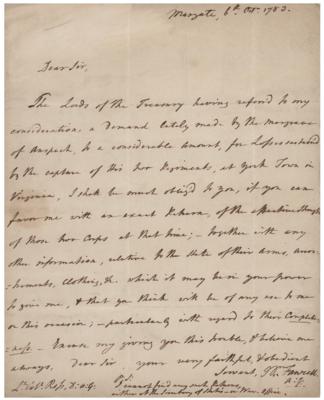 Margate, 6th Octr. 1783.
Dear Sir,
The Lords of the Treasury having referred to my
consideration, a Demand lately made by the Margrave
of Anspach, to a considerable amount, for Losses sustained
by the capture of his two Regiments, at York Town in
Virginia, I shall be much obliged to you, if you can
favor me with an exact Return, of the effective Strength
of those two Corps at that time; - together with any
other information, relative to the State of their arms, accou-
trements, Cloathing, &c. which it may be in your power
to give me, & that you think will be of any use to me
on this occasion; - particularly with regard to their Complete-
ness. - Excuse my giving you this trouble, & believe me
always, Dear Sir, your very faithful, & obedient
Servant,
Lt. Col. Ross, D.A.G.
P.S. I cannot find any such Returns,
either at the Secretary of State's or War Office.